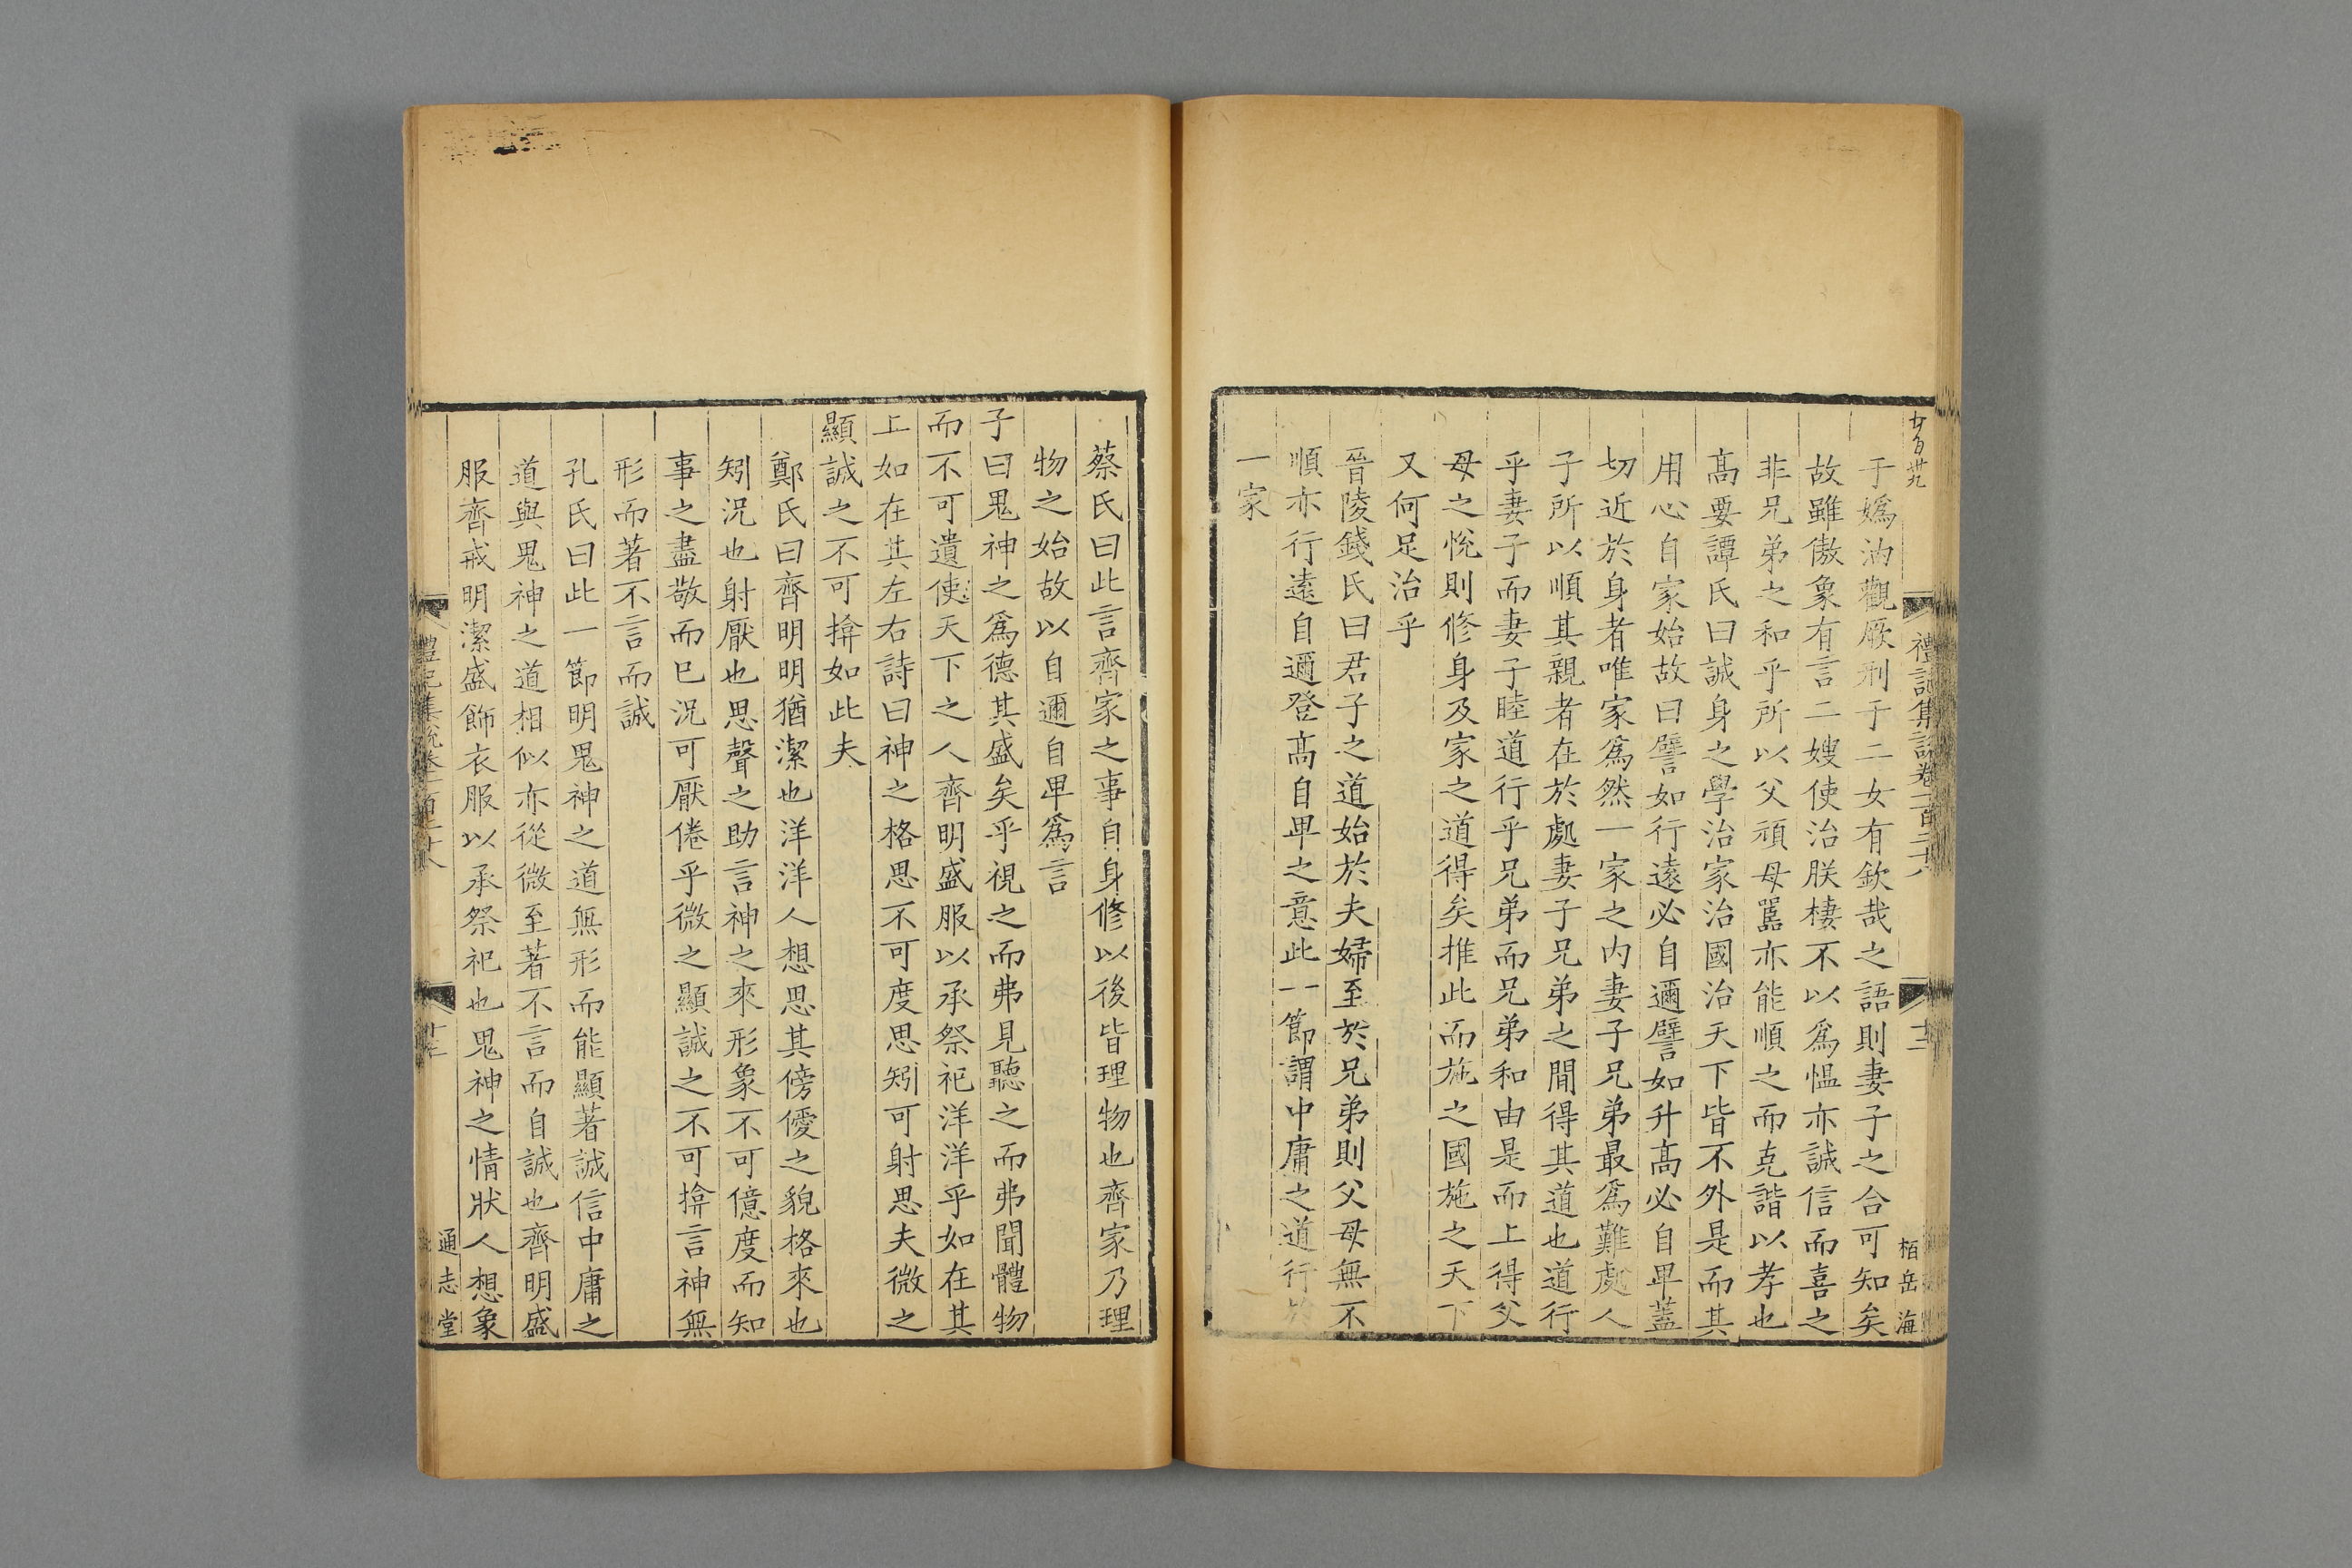 禮記集說卷一百二十八
栢岳海
于嬀汭觀厥刑于二女有欽哉之語則妻子之合可知矣
故雖傲象有言二嫂使治朕棲不以爲慍亦誠信而喜之
非兄弟之和乎所以父頑母嚚亦能順之而克諧以孝也
髙要譚氏曰誠身之學治家治國治天下皆不外是而其
用心自家始故曰譬如行遠必自邇譬如升髙必自卑蓋
切近於身者唯家爲然一家之内妻子兄弟最爲難處人
子所以順其親者在於處妻子兄弟之間得其道也道行
乎妻子而妻子睦道行乎兄弟而兄弟和由是而上得父
母之悅則修身及家之道得矣推此而施之國施之天下
又何足治乎
晉陵錢氏曰君子之道始於夫婦至於兄弟則父母無不
順亦行遠自邇登髙自卑之意此一節謂中庸之道行於
一家
蔡氏曰此言齊家之事自身修以後皆理物也齊家乃理
物之始故以自邇自卑爲言
子曰鬼神之爲德其盛矣乎視之而弗見聽之而弗聞體物
而不可遺使天下之人齊明盛服以承祭祀洋洋乎如在其
上如在其左右詩曰神之格思不可度思矧可射思夫微之
顯誠之不可揜如此夫
鄭氏曰齊明明猶潔也洋洋人想思其傍僾之貌格來也
矧況也射厭也思聲之助言神之來形象不可億度而知
事之盡敬而已況可厭倦乎微之顯誠之不可揜言神無
形而著不言而誠
孔氏曰此一節明鬼神之道無形而能顯著誠信中庸之
道與鬼神之道相似亦從微至著不言而自誠也齊明盛
服齊戒明潔盛飾衣服以承祭祀也鬼神之情狀人想象
禮記集說卷一百二十八
通志堂